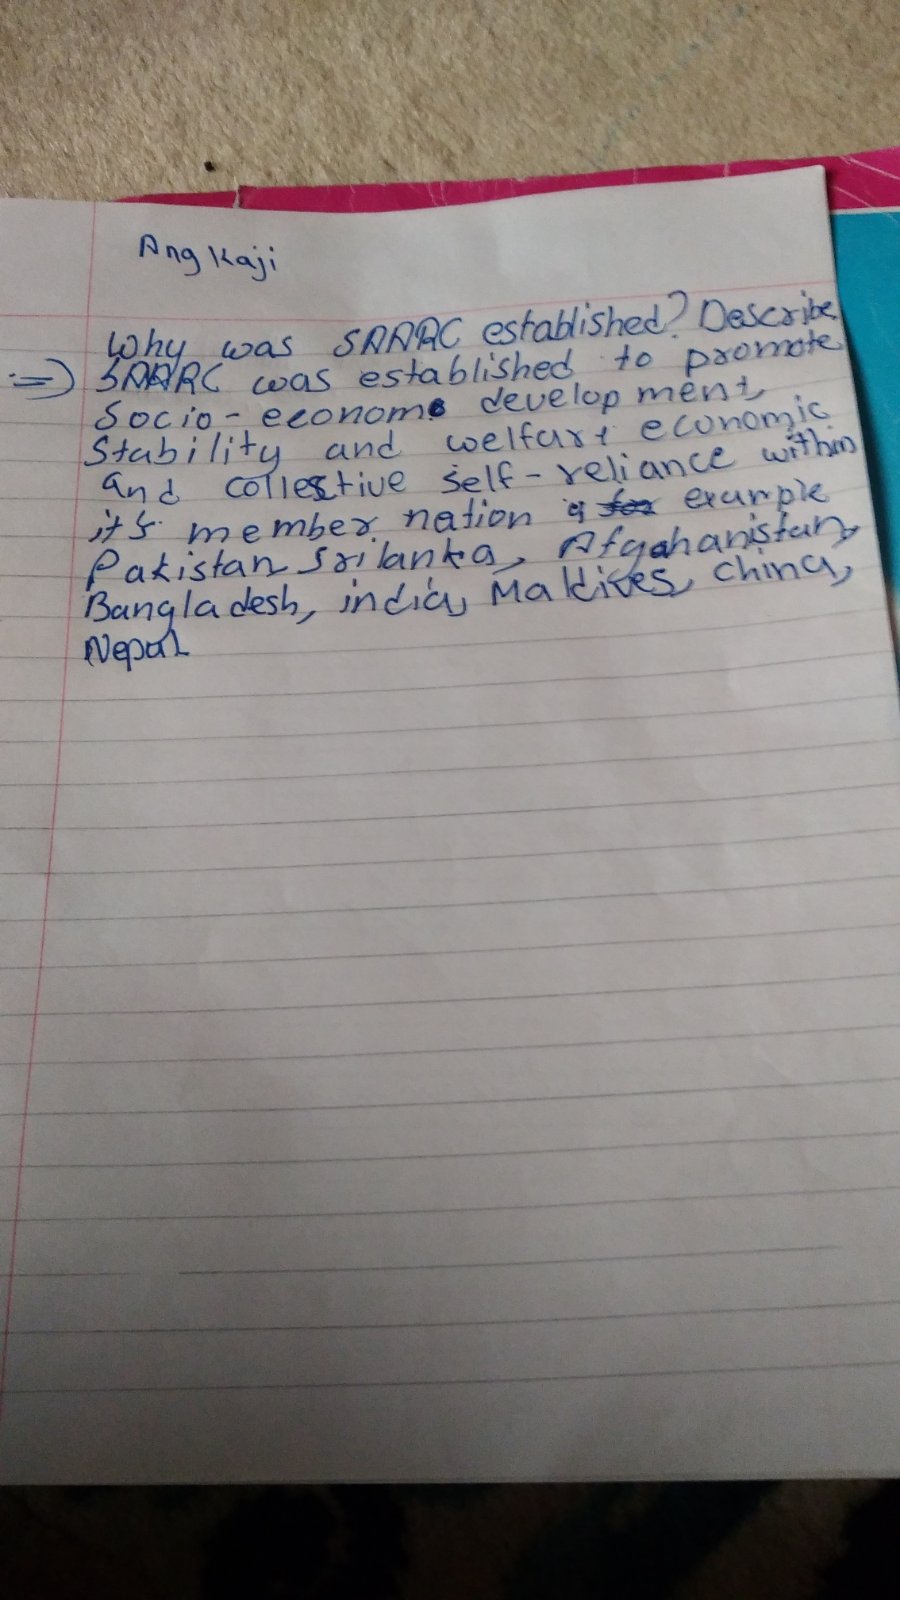 Ang Kaji
Why was SAARC established? Describe
=> SAARC was established to promote
Socio-econom development
Stability and welfart economic
and collective self-reliance within
it's member nation example
Pakistan Srilanka, Afgahanistan,
Bangladesh, india, Maldives, china,
Nepal